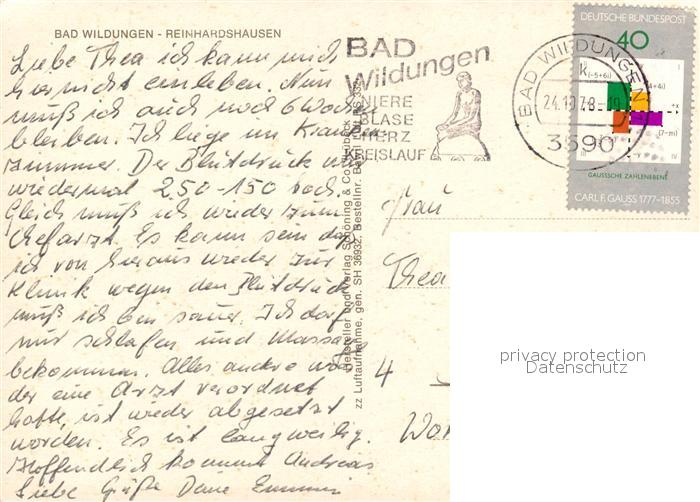 BAD WILDUNGEN - REINHARDSHAUSEN
Liebe Thea ich kann mich
hier nicht einleben. Nun
muß ich auch noch 6 Woch
bleiben. Ich liege im Kranken
zimmer. Der Blutdruck war
wiedermal 250-150 hoch.
Gleich muß ich wieder zum
Chefarzt. Es kann sein das
ich von hieraus wieder zur
Klinik wegen den Blutdruck
muß ich bin sauer. Ich darf
nur schlafen und Massage
bekommen. Alles andre was
der eine Arzt verordnet
hatte, ist wieder abgesetzt
worden. Es ist langweilig.
Hoffendlich kommt Andreas
Liebe Grüße Deine Emmi
BAD
Wildungen
NIERE
BLASE
HERZ
KREISLAUF
BAD WILDUNGEN
24.10.78-19
3590
DEUTSCHE BUNDESPOST
40
k(-5+6i)
(4+4i)
+x
(7-i)
III
-y
IV
GAUSSSCHE ZAHLENEBENE
CARL F. GAUSS 1777-1855
Hersteller und Verlag Schöning & Co., Lübeck
zz Luftaufnahme, gen. SH 36932, Bestellnr.
Frau
Thea
4
Wor
privacy protection
Datenschutz